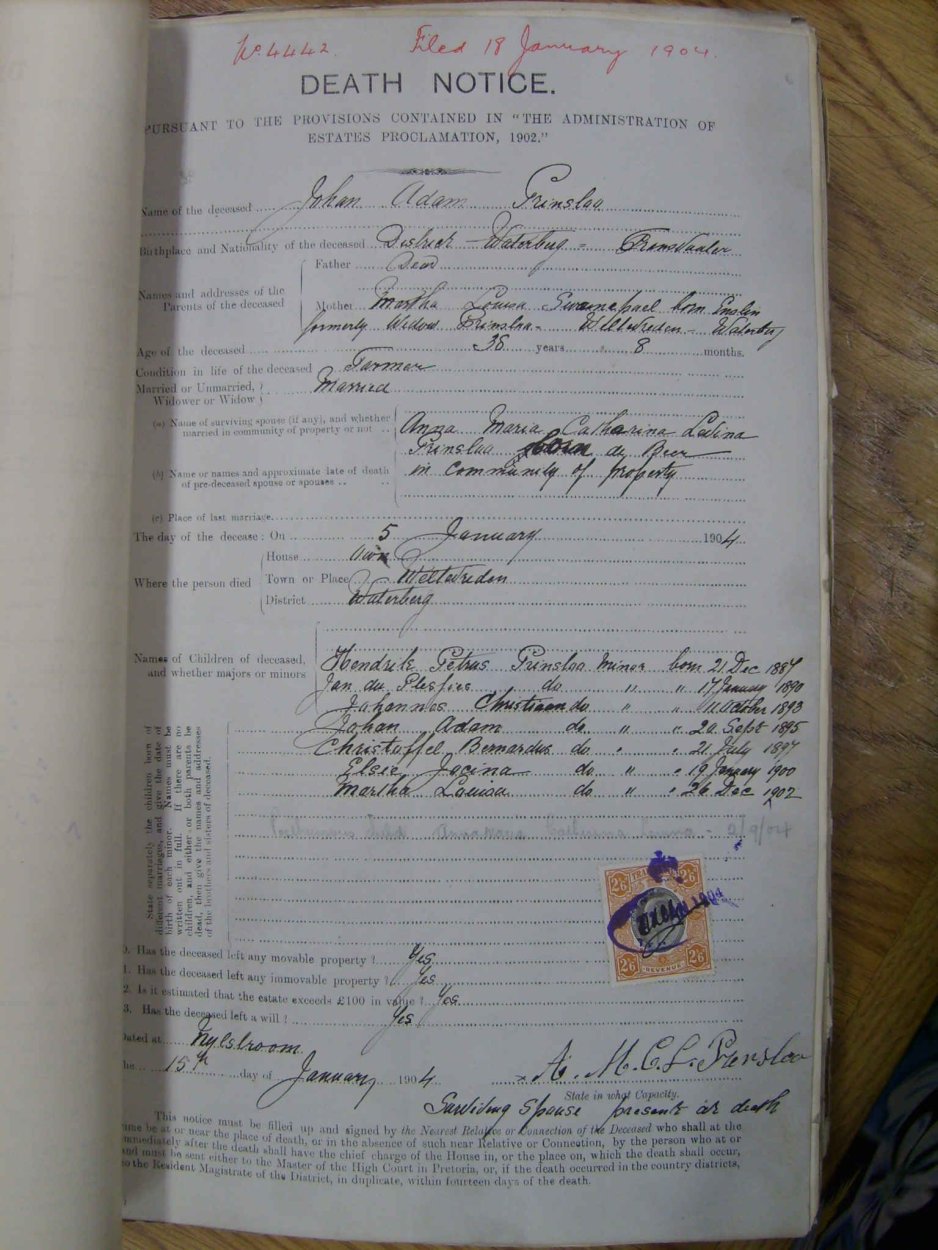 No. 4442. Filed 18 January 1904.
DEATH NOTICE.
PURSUANT TO THE PROVISIONS CONTAINED IN "THE ADMINISTRATION OF
ESTATES PROCLAMATION, 1902."
Name of the deceased Johan Adam Prinsloo
Birthplace and Nationality of the deceased District Waterberg - Transvaaler
Names and addresses of the Parents of the deceased
Father Dead
Mother Martha Louisa Swanepoel born Enslin
formerly Widow Prinsloo - Weltevreden - Waterberg
Age of the deceased 36 years 8 months.
Condition in life of the deceased Farmer
Married or Unmarried, Widower or Widow Married
(a) Name of surviving spouse (if any), and whether married in community of property or not
Anna Maria Catharina Levina
Prinsloo born de Beer
in community of property
(b) Name or names and approximate date of death of pre-deceased spouse or spouses
(c) Place of last marriage
The day of the decease: On 5 January 1904
Where the person died
House Own
Town or Place Weltevreden
District Waterberg
Names of Children of deceased, and whether majors or minors
Hendrik Petrus Prinsloo minor born 21 Dec 1887
Jan du Plessies do " " 17 January 1890
Johannes Christiaan do " " 11 October 1893
Johan Adam do " " 20 Sept 1895
Christoffel Bernardus do " " 21 July 1897
Elsie Jacina do " " 19 January 1900
Martha Louisa do " " 26 Dec 1902
2/9/04
State separately the children born of
different marriages, and give the date of
birth of each minor. Names must be
written out in full. If there are no
children, and either or both parents be
dead, then give the names and addresses
of the brothers and sisters of deceased.
2/6 2/6
2/6 REVENUE 2/6
0. Has the deceased left any movable property? Yes
1. Has the deceased left any immovable property? Yes
2. Is it estimated that the estate exceeds £100 in value? Yes
3. Has the deceased left a will? Yes
Dated at Nylstroom
the 15th day of January 1904 A. M. C. L. Prinsloo
State in what Capacity.
Surviving Spouse present at death
This notice must be filled up and signed by the Nearest Relative or Connection of the Deceased who shall at the
time be at or near the place of death, or in the absence of such near Relative or Connection, by the person who at or
immediately after the death shall have the chief charge of the House in, or the place on, which the death shall occur,
and must be sent either to the Master of the High Court in Pretoria, or, if the death occurred in the country districts,
to the Resident Magistrate of the District, in duplicate, within fourteen days of the death.